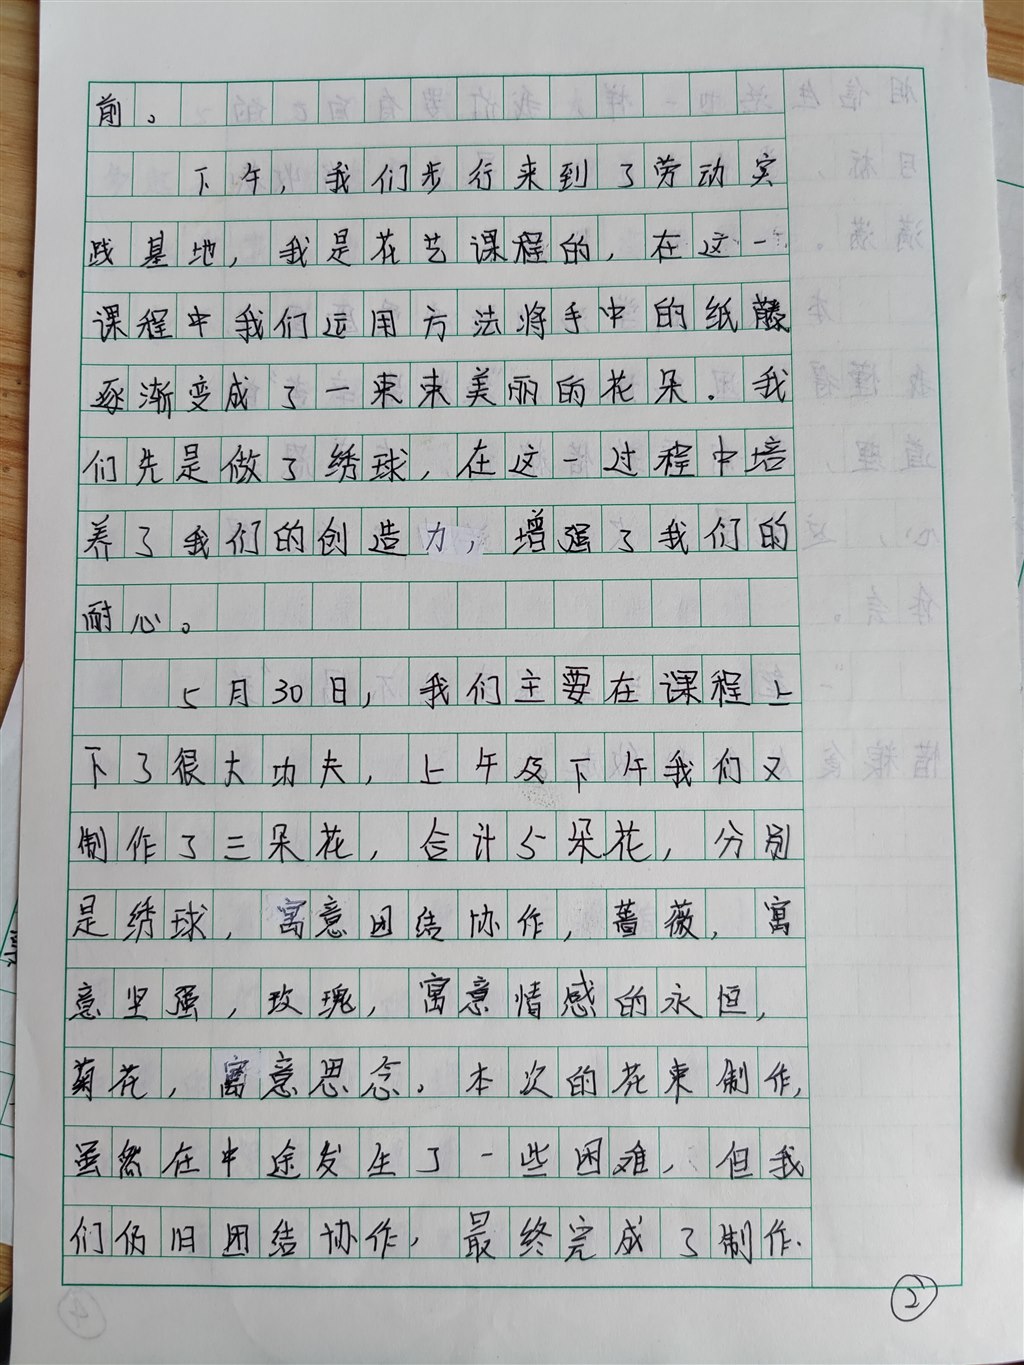 前。
下午，我们步行来到了劳动实
践基地，我是花艺课程的，在这一
课程中我们运用方法将手中的纸藤
逐渐变成了一束束美丽的花朵。我
们先是做了绣球，在这一过程中培
养了我们的创造力，增强了我们的
耐心。
5月30日，我们主要在课程上
下了很大功夫，上午及下午我们又
制作了三朵花，合计5朵花，分别
是绣球，寓意团结协作，蔷薇，寓
意坚强，玫瑰，寓意情感的永恒，
菊花，寓意思念。本次的花束制作，
虽然在中途发生了一些困难，但我
们仍旧团结协作，最终完成了制作.
2